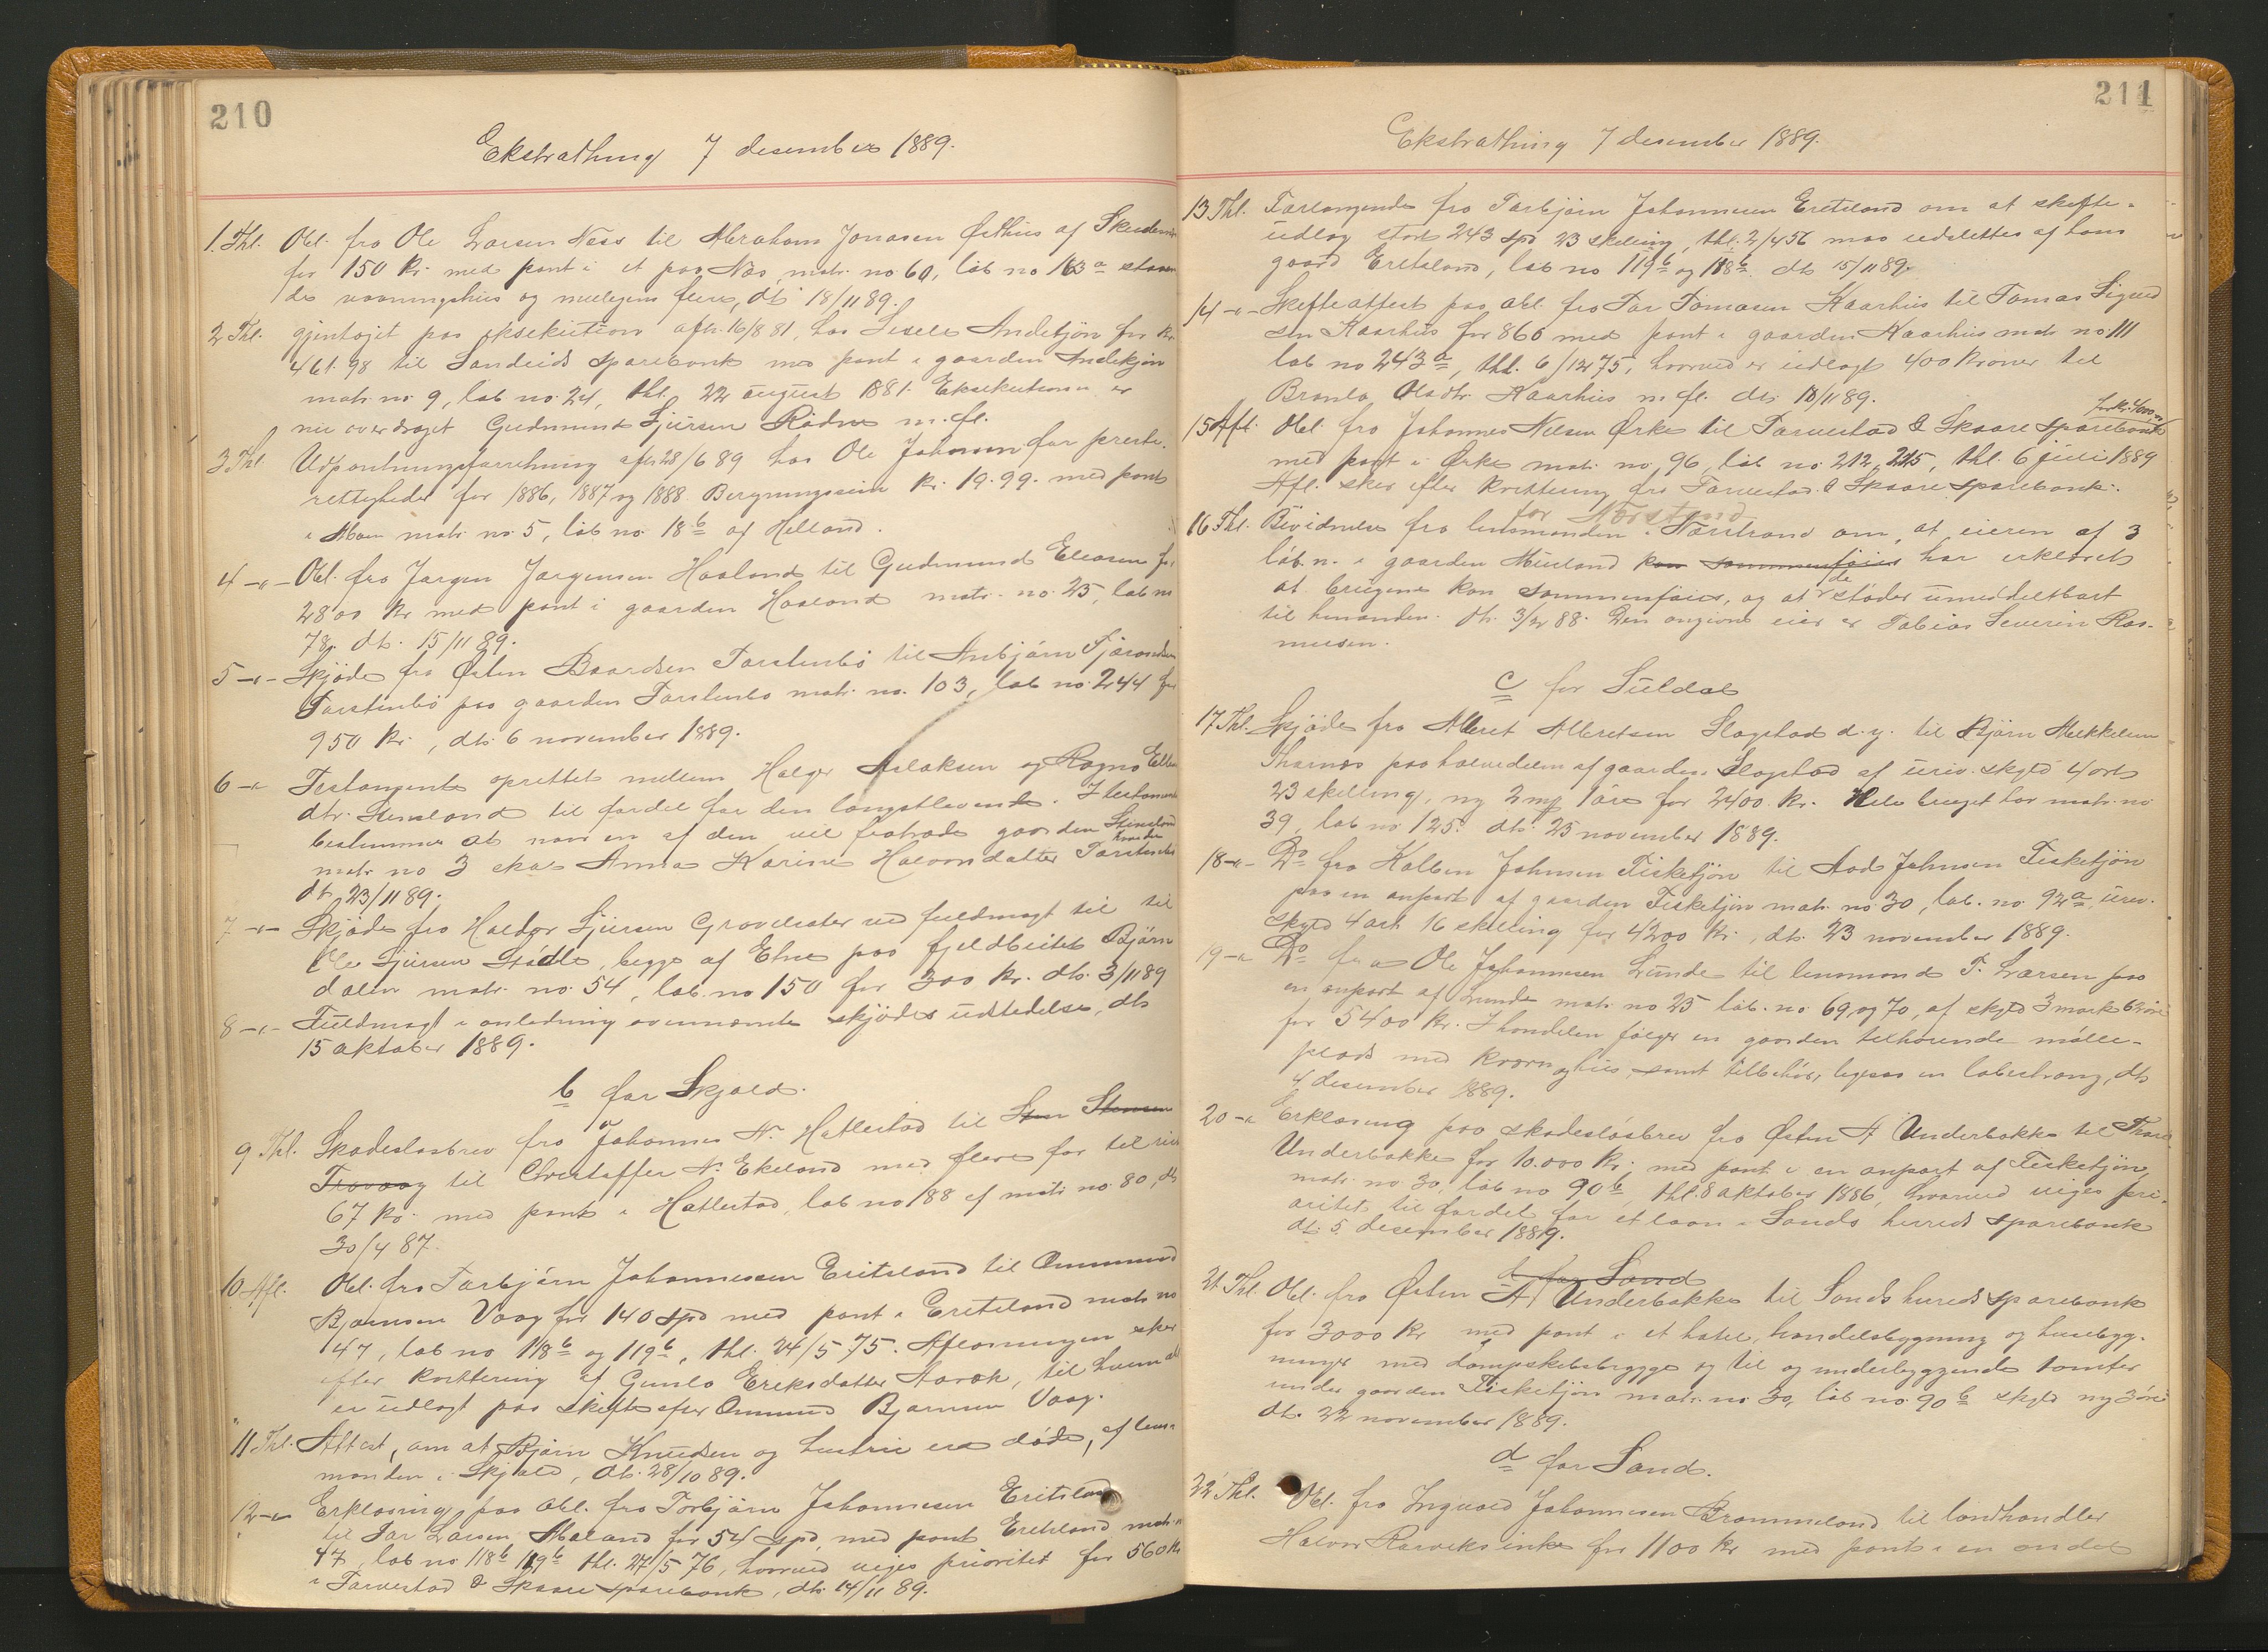 210
Ekstrathing 7 desember 1889.
1. Thl. Obl. fra Ole Larsen Næss til Abraham Jonasen Østhus af
for 150 kr. med pant i et paa Næs, matr. no. 60, löb no 163a staaen
de vaaningshus og muligens flere, dt. 18/11 89.
2 Thl. gjentaget paa eksekution afh. 16/8 81, hos Andetjön for kr.
461.98 til Sandeids sparebank med pant i gaarden Andetjön
matr. no 9, löb no. 24, thl. 22 august 1881. Eksekutionen er
nu overdraget Gudmund Sjursen Rödne m. fl.
3 Thl. Udpantningsforretning afh. 28/6 89 hos Ole Johnsen for preste-
rettigheder for 1886, 1887 og 1888. kr. 19.99. med pant
i Moen matr. no. 5, löb no. 18b af Helland.
4 -"- Obl. fra Jørgen Jørgensen Haaland til Gudmund Eliasen for
2800 kr med pant i gaarden Haaland matr. no. 25, löb no
78, dt. 15/11 89.
5 -"- Skjöde fra Østen Baardsen Torstenbö til Anbjörn
Torstenbö paa gaarden Torstenbö matr. no. 103, löb no. 244 for
950 kr., dt. 6 november 1889.
6 -"- Testamente oprettet mellem Helge Aslaksen og Ragna
dtr. til fordel for den længstlevende. I testamentet
bestemmes at naar en af dem vil fratræde gaarden
matr. no 3 skal Anna Karine Halvorsdatter
dt. 23/11 89.
7 -"- Skjöde fra Haldor Sjursen ved fuldmagt til til
Ole Sjursen Stödle, begge af Etne paa fjeldbeitet Björn
dalen matr. no. 54, löb. no 150 for 300 kr. dt. 3/11 89
8 -"- Fuldmagt i anledning ovennævnte skjödes udstedelse, dt.
15 oktober 1889.
b for Skjold.
9 Thl. Skadeslösbrev fra Johannes N. Hatlestad til Sten Stensen
til Christoffer N. Ekeland med flere for
67 kr. med pant i Hatlestad, löb no 188 af matr. no. 80, dt.
30/4 87.
10 Afl. Obl. fra Torbjörn Johannessen Eritsland til Ommund
Bjørnsen Vaag for 140 spd med pant i Eritsland matr no
47, löb no 118b og 119b, thl. 24/5 75. Aflæsningen sker
efter kvittering af Gunla Eriksdatter, til hvem obl
er udlagt paa skifte efter Ommund Bjørnsen Vaag.
11 Thl. Attest, om at Björn Knudsen og hustru er döde, af lens-
manden i Skjold, dt. 28/10 89.
12 -"- Erklæring paa obl. fra Torbjörn Johannesen Eritsland
til Tor Larsen for 54 spd, med pant Eritsland matr. no
47, löb no 118b 119b thl. 27/5 76, hvorved viges prioritet for 560 kr
i Torvestad & Skaare sparebank, dt. 14/11 89.
211
Ekstrathing 7 desember 1889.
13 Thl. Forlangende fra Torbjörn Johannesen Eritsland om at skifte-
udlæg stort 243 spd 23 skilling, thl. 2/4 56 maa udslettes af hans
gaard Eritsland, löb no 119b og 118b. dt. 15/11 89.
14 -"- Skifteattest paa obl. fra Tor Tomasen Kaarhus til Tomas
sen Kaarhus for 860 med pant i gaarden Kaarhus matr no. 111
löb no 243a, thl. 6/12 75, hvorved er udlagt 400 kroner til
Kaarhus m. fl. dt. 18/11 89.
for kr. 4000
15 Afl. Obl. fra Johannes Nilsen Ørke til Torvestad & Skaare sparebank
med pant i Ørke matr. no. 96, löb no. 212, 215, thl. 6 juli 1889
Afl. sker efter kvittering fra Torvestad & Skaare sparebank.
for Nærstrand
16 Thl. Bevidnelse fra lensmanden i Nærstrand om, at eieren af 3
löb. n. i gaarden kan sammenföies har erklæret
at brugene kan sammenföies, og at de stöder umiddelbart
til hinanden. dt. 3/ 88. Den angivne eier er Tobias Severin Ras-
mussen.
c for Suldal
17 Thl. Skjöde fra Albert Albertsen Slogstad d. y. til Björn Mikkelsen
paa halvdelen af gaarden Slogstad af urev. skyld 4 ort
23 skilling, ny 2 mk 1 öre for 2400 kr. Hele bruget har matr. no
39, löb no. 125. dt. 25 november 1889.
18 -"- Do fra Kolben Johnsen Fisketjön til Aad Johnsen Fisketjön
paa en anpart af gaarden Fisketjön matr. no. 30, löb. no. 92a, urev.
skyld 4 ort 16 skilling for 4200 kr., dt. 23 november 1889.
19 -"- Do fra Ole Johannesen Lunde til lensmand T. Larsen paa
en anpart af Lunde matr. no 25 löb. no. 69, og 70, af skyld 3 mark 62 öre
for 5400 kr. I handelen fölger en gaarden tilhörende mölle-
plads med kværn og hus, samt tilbehör, ligesaa en, dt.
4 desember 1889.
20 -"- Erklæring paa skadeslösbrev fra Østen A Underbakke til
Underbakke for 10.000 kr. med pant i en anpart af Fisketjön
matr. no 30, löb no 90b, thl. 8 oktober 1886, hvorved viges pri-
oritet til fordel for et laan i Sands herreds sparebank
dt. 5 desember 1889.
d for Sand
21 Thl. Obl. fra Østen A Underbakke til Sands herreds sparebank
for 3000 kr med pant i et hotel, handelsbygning og husebyg-
ninger med dampskibsbrygge og til og underliggende tomter
under gaarden Fisketjön matr. no 30, löb no. 90b skyld ny 3 öre
dt. 22 november 1889.
d for Sand.
22 Thl. Obl. fra Ingvald Johannesen Brommeland til landhandler
Halvor enke for 1100 kr med pant i en andel